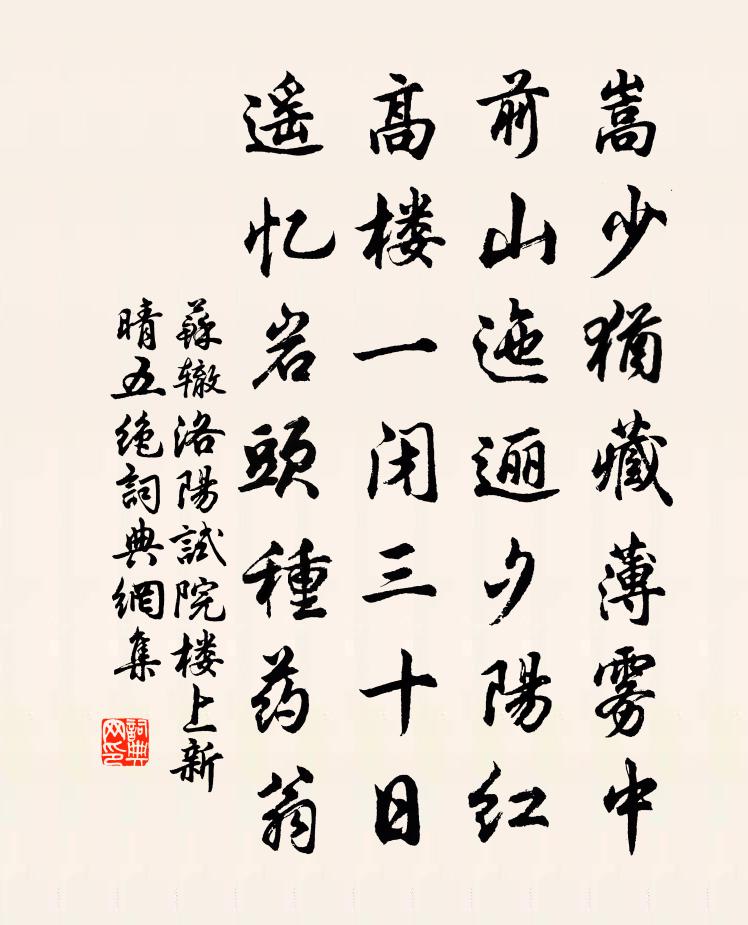 嵩少猶藏薄雾中
前山迤逦夕陽红
高楼一闭三十日
遥忆岩頭種药翁
蘇辙洛陽試院楼上新
晴五绝詞典網集
詞典网印